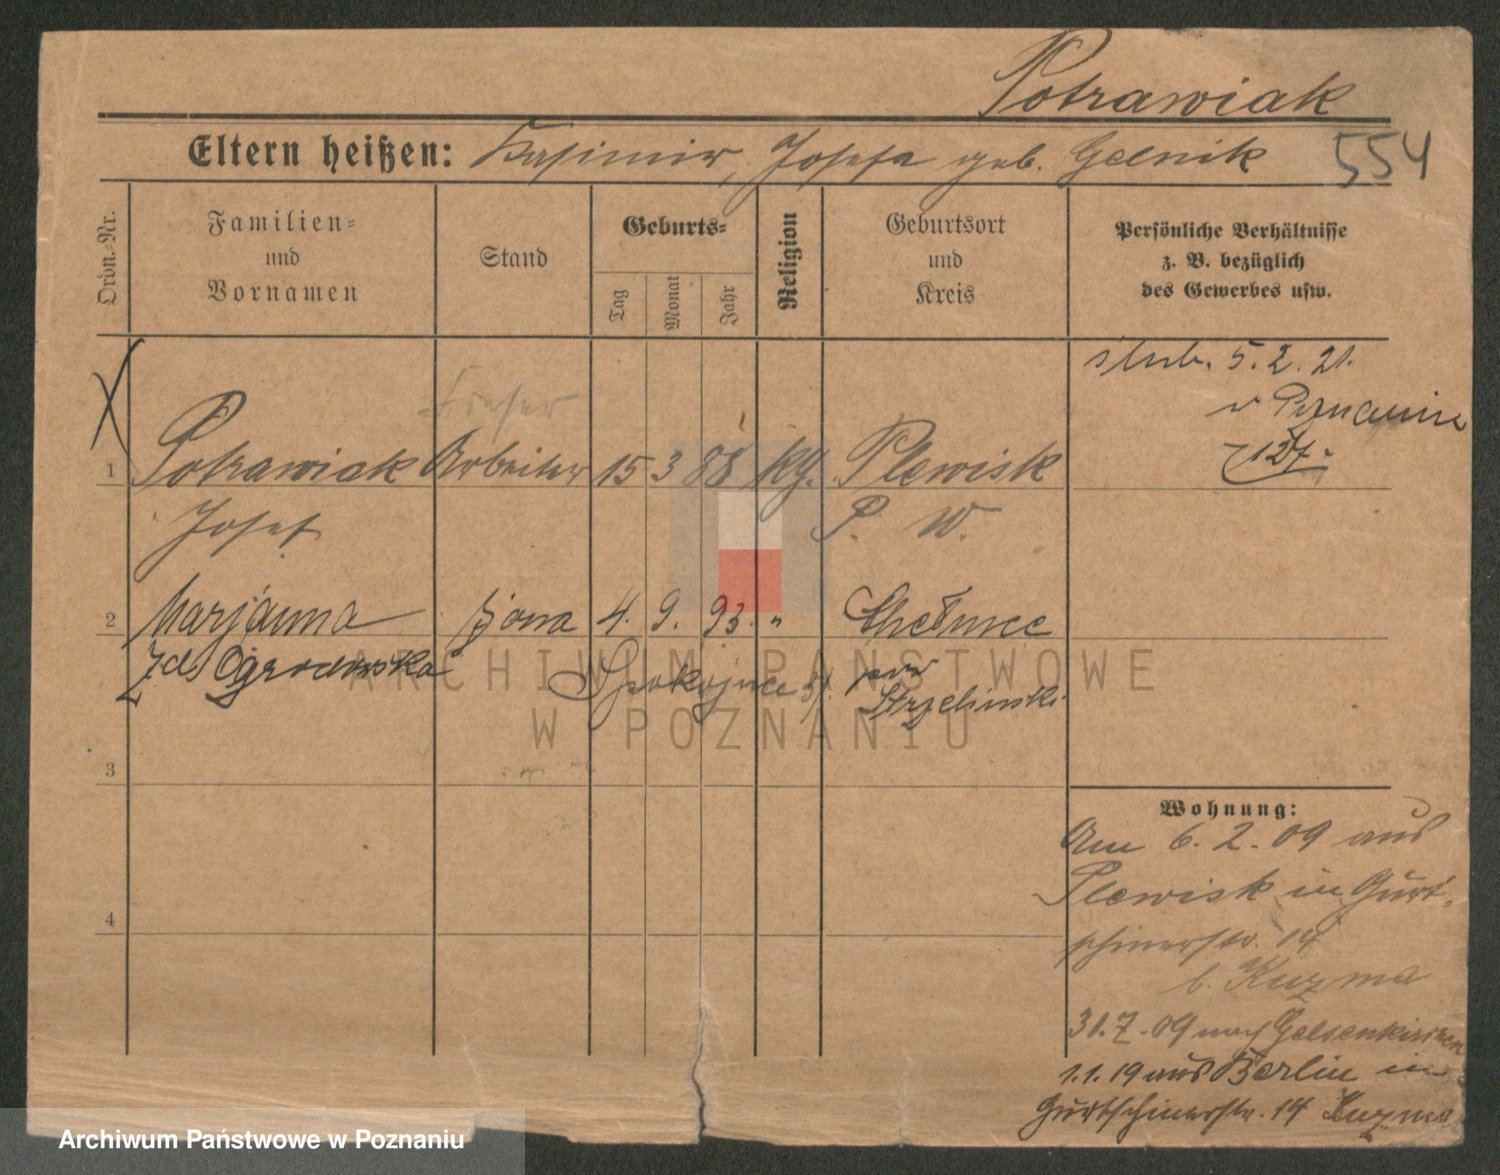 Potrawiak
Eltern heißen: Kasimir, Josefa geb. Gelnik 554
Ordn.-Nr.
Familien-
und
Vornamen
Stand
Geburts-
Tag
Monat
Jahr
Religion
Geburtsort
und
Kreis
Persönliche Verhältnisse
z. B. bezüglich
des Gewerbes usw.
ślub. 5. 2. 21.
w Poznaniu
1 Potrawiak Arbeiter 15 3 88 kg. Plewisk
Josef P. W.
2 Marjanna żona 4. 9. 93. "
zd. Ogrodowska pow
Strzeliński
3
4
Wohnung:
Am 6. 2. 09 aus
Plewisk in Gurt-
schinerstr. 14
b. Kuzma
31. 7. 09 nach Gelsenkirchen
1. 1. 19 aus Berlin in
Gurtschinerstr. 14 Kuzma
ARCHIWUM PAŃSTWOWE
W POZNANIU
Archiwum Państwowe w Poznaniu